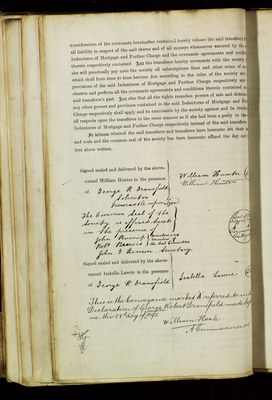 consideration of the covenants hereinafter contained hereby release the said transferor
all liability in respect of the said shares and of all moneys whatsoever secured by the
Indentures of Mortgage and Further Charge and the covenants agreements and conditions
therein respectively contained And the transferee hereby covenants with the society
she will punctually pay unto the society all subscriptions fines and other sums of
which shall from time to time become due according to the rules of the society
provisions of the said Indentures of Mortgage and Further Charge respectively
observe and perform all the covenants agreements and conditions therein contained
said transferor's part And also that all the rights remedies powers of sale and
any other powers and provisoes contained in the said Indentures of Mortgage and
Charge respectively shall apply and be exercisable by the society against and be
all respects upon the transferee in the same manner as if she had been a party to
Indentures of Mortgage and Further Charge respectively instead of the said transferor
In witness whereof the said transferor and transferee have hereunto set their
and seals and the common seal of the society has been hereunto affixed the day
first above written.
Signed sealed and delivered by the above-
named William Hunter in the presence
of George R Dransfield
Solicitor
Newcastle upon Tyne
William Hunter
William Hunter
The Common Seal of the
Society is affixed hereto
in the presence of
John
Robt
John Secretary
Signed sealed and delivered by the above-
named Isabella Lawrie in the presence
of George R Dransfield
Isabella Lawrie
This is the Conveyance marked A referred to in
Declaration of George Robert Dransfield made
me this day of
William
A Commissioner